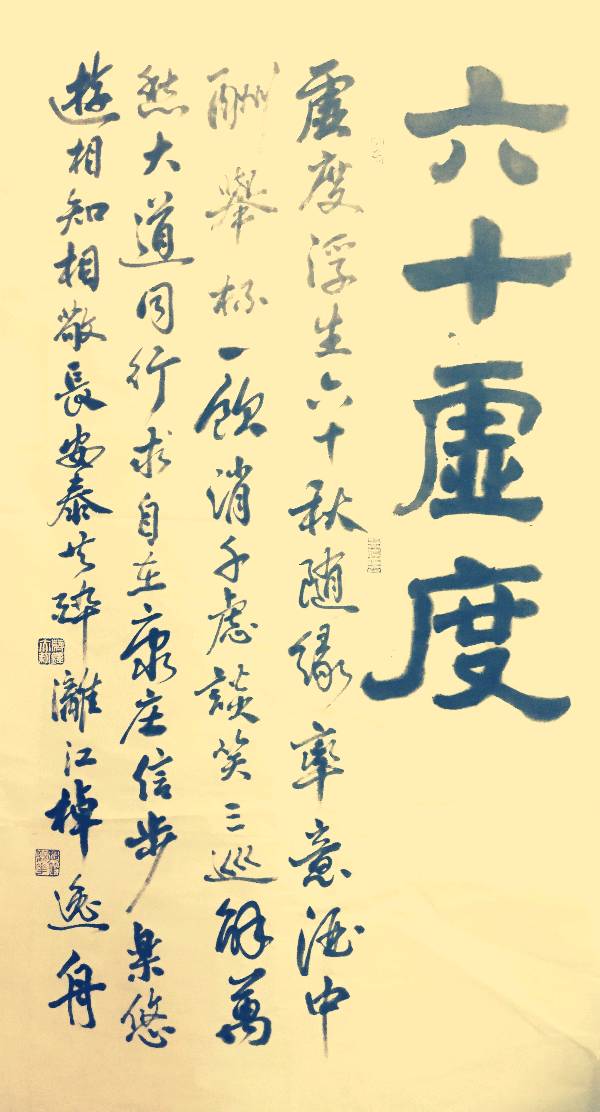 六十虚度
虚度浮生六十秋随缘率意酒中
酬舉杯一飲消千慮談笑三巡解萬
愁大道同行求自在康庄信步樂悠
遊相知相敬長安泰共醉灕江棹逸舟